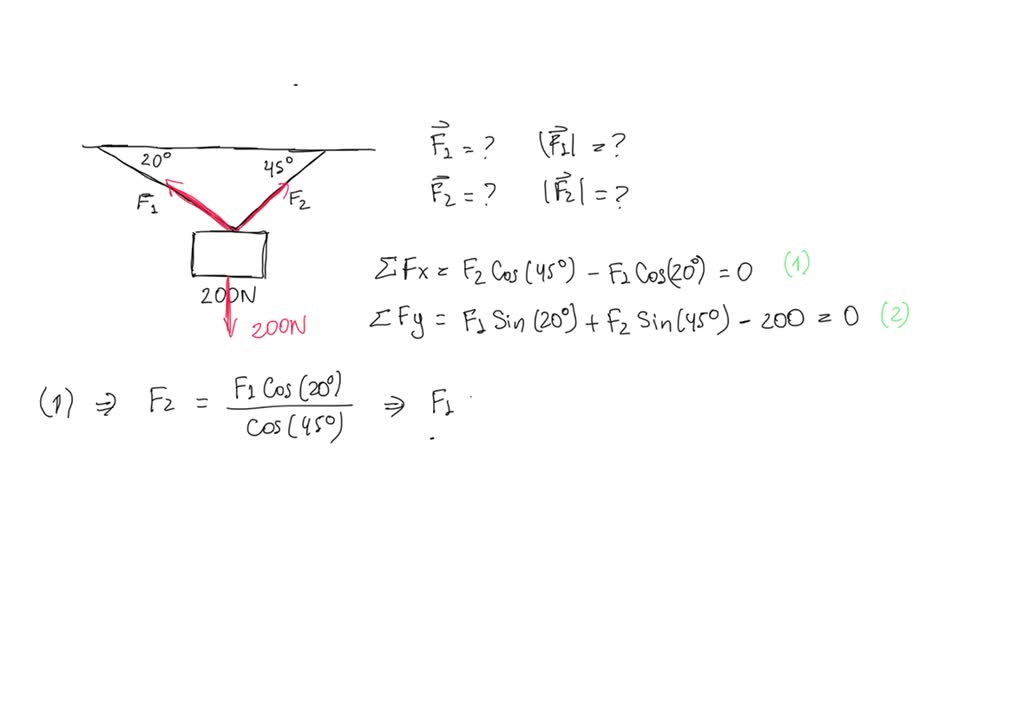 F⃗1 = ? |F⃗1| = ?
F⃗2 = ? |F⃗2| = ?
20° 45°
F1 F2
200N
200N
ΣFx = F2 Cos(45°) - F1 Cos(20°) = 0 (1)
ΣFy = F1 Sin(20°) + F2 Sin(45°) - 200 = 0 (2)
(1) ⇒ F2 = F1 Cos(20°) / Cos(45°) ⇒ F1